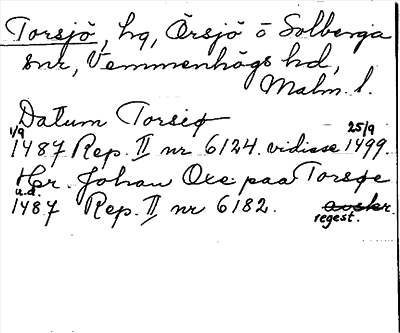 Torsjö, hg, Örsjö o Solberga
snr, Vemmenhögs hd,
Malm. l.
Datum Torsiø
1/9 25/9
1487 Rep. II nr 6124. vidisse 1499.
Her Johan Oxe paa Torsøe
u.d.
1487 Rep. II nr 6182. avskr.
regest.